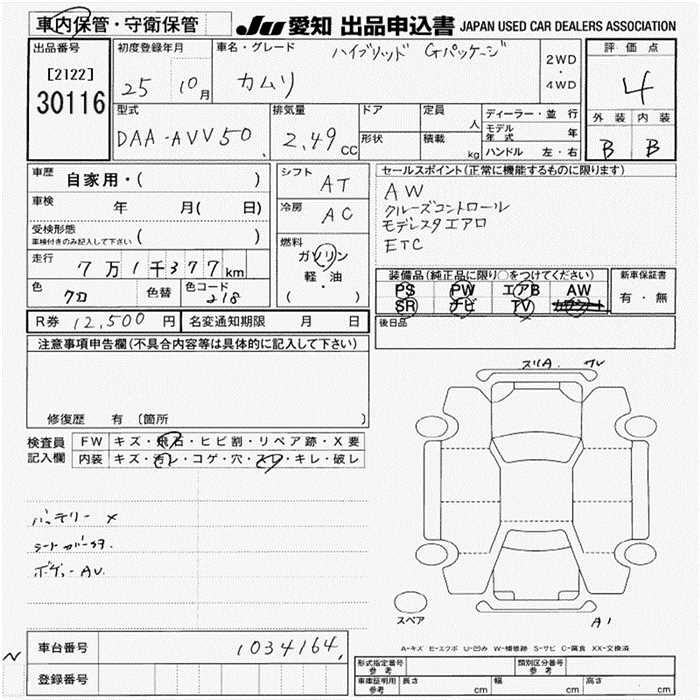 車内保管・守衛保管
JU 愛知 出品申込書 JAPAN USED CAR DEALERS ASSOCIATION
出品番号
[2122]
30116
初度登録年月
25 10月
車名・グレード
ハイブリッド Gパッケージ
カムリ
2WD
・
4WD
評価点
4
外装 内装
B B
型式
DAA-AVV50
排気量
2.49 cc
ドア
形状
定員 人
積載 kg
ディーラー・並行
モデル年式 年
ハンドル 左・右
車歴 自家用・( )
車検 年 月( 日)
受検形態
車検付きのみ記入して下さい ( )
走行 7万1千377km
色 色替 色コード
218
R券 12,500円 名変通知期限 月 日
シフト
AT
冷房
AC
燃料
ガソリン
軽・油
・
( )
セールスポイント(正常に機能するものに限ります)
AW
クルーズコントロール
モデリスタエアロ
ETC
装備品(純正品に限り○をつけてください) 新車保証書
PS PW エアB AW
SR ナビ TV
有・無
後日品
注意事項申告欄(不具合内容等は具体的に記入して下さい)
修復歴 有 〔箇所 〕
検査員記入欄
FW キズ・飛石・ヒビ割・リペア跡・X要
内装 キズ・汚レ・コゲ・穴・スレ・キレ・破レ
バッテリー ×
ボデーAU
スリA
A1
スペア
A-キズ E-エクボ U-凹み W-補修跡 S-サビ C-腐食 XX-交換済
N
車台番号 1034164
登録番号
形式指定番号 参考 類別区分番号 参考
車庫証明用 参考 長さ cm 幅 cm 高さ cm